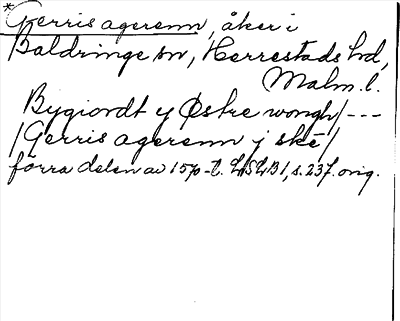 *Gerris agerenn, åker i
Baldringe sn, Herrestads hd,
Malm.l.
Bygiordt y Østre wongh/---
/Gerris agerenn j skē/
förra delen av 1570-t. LLSLB1, s.237. orig.